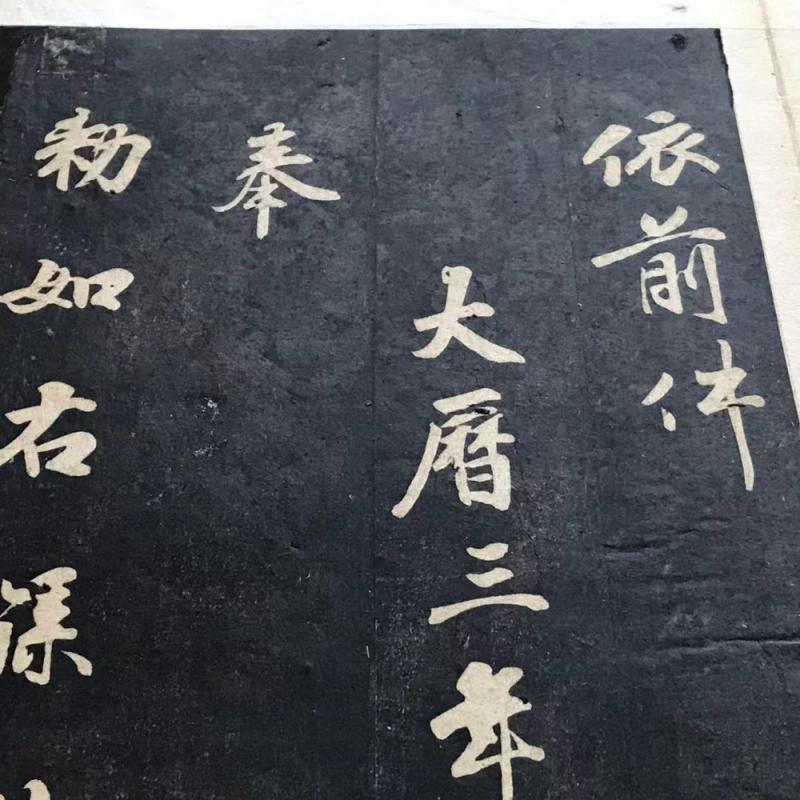 依前件
大曆三年
奉
勅如右牒